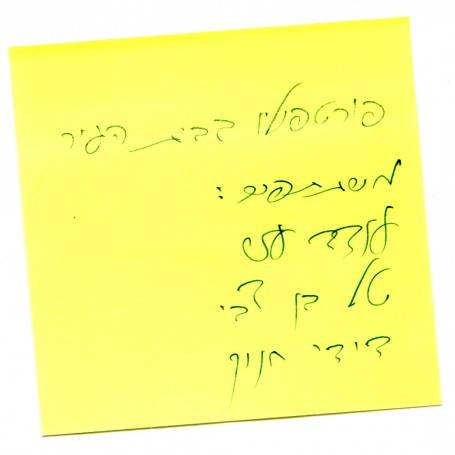 פורטפוליו בבית הגיר
משתתפים:
טל בן צבי
דודי חנוך